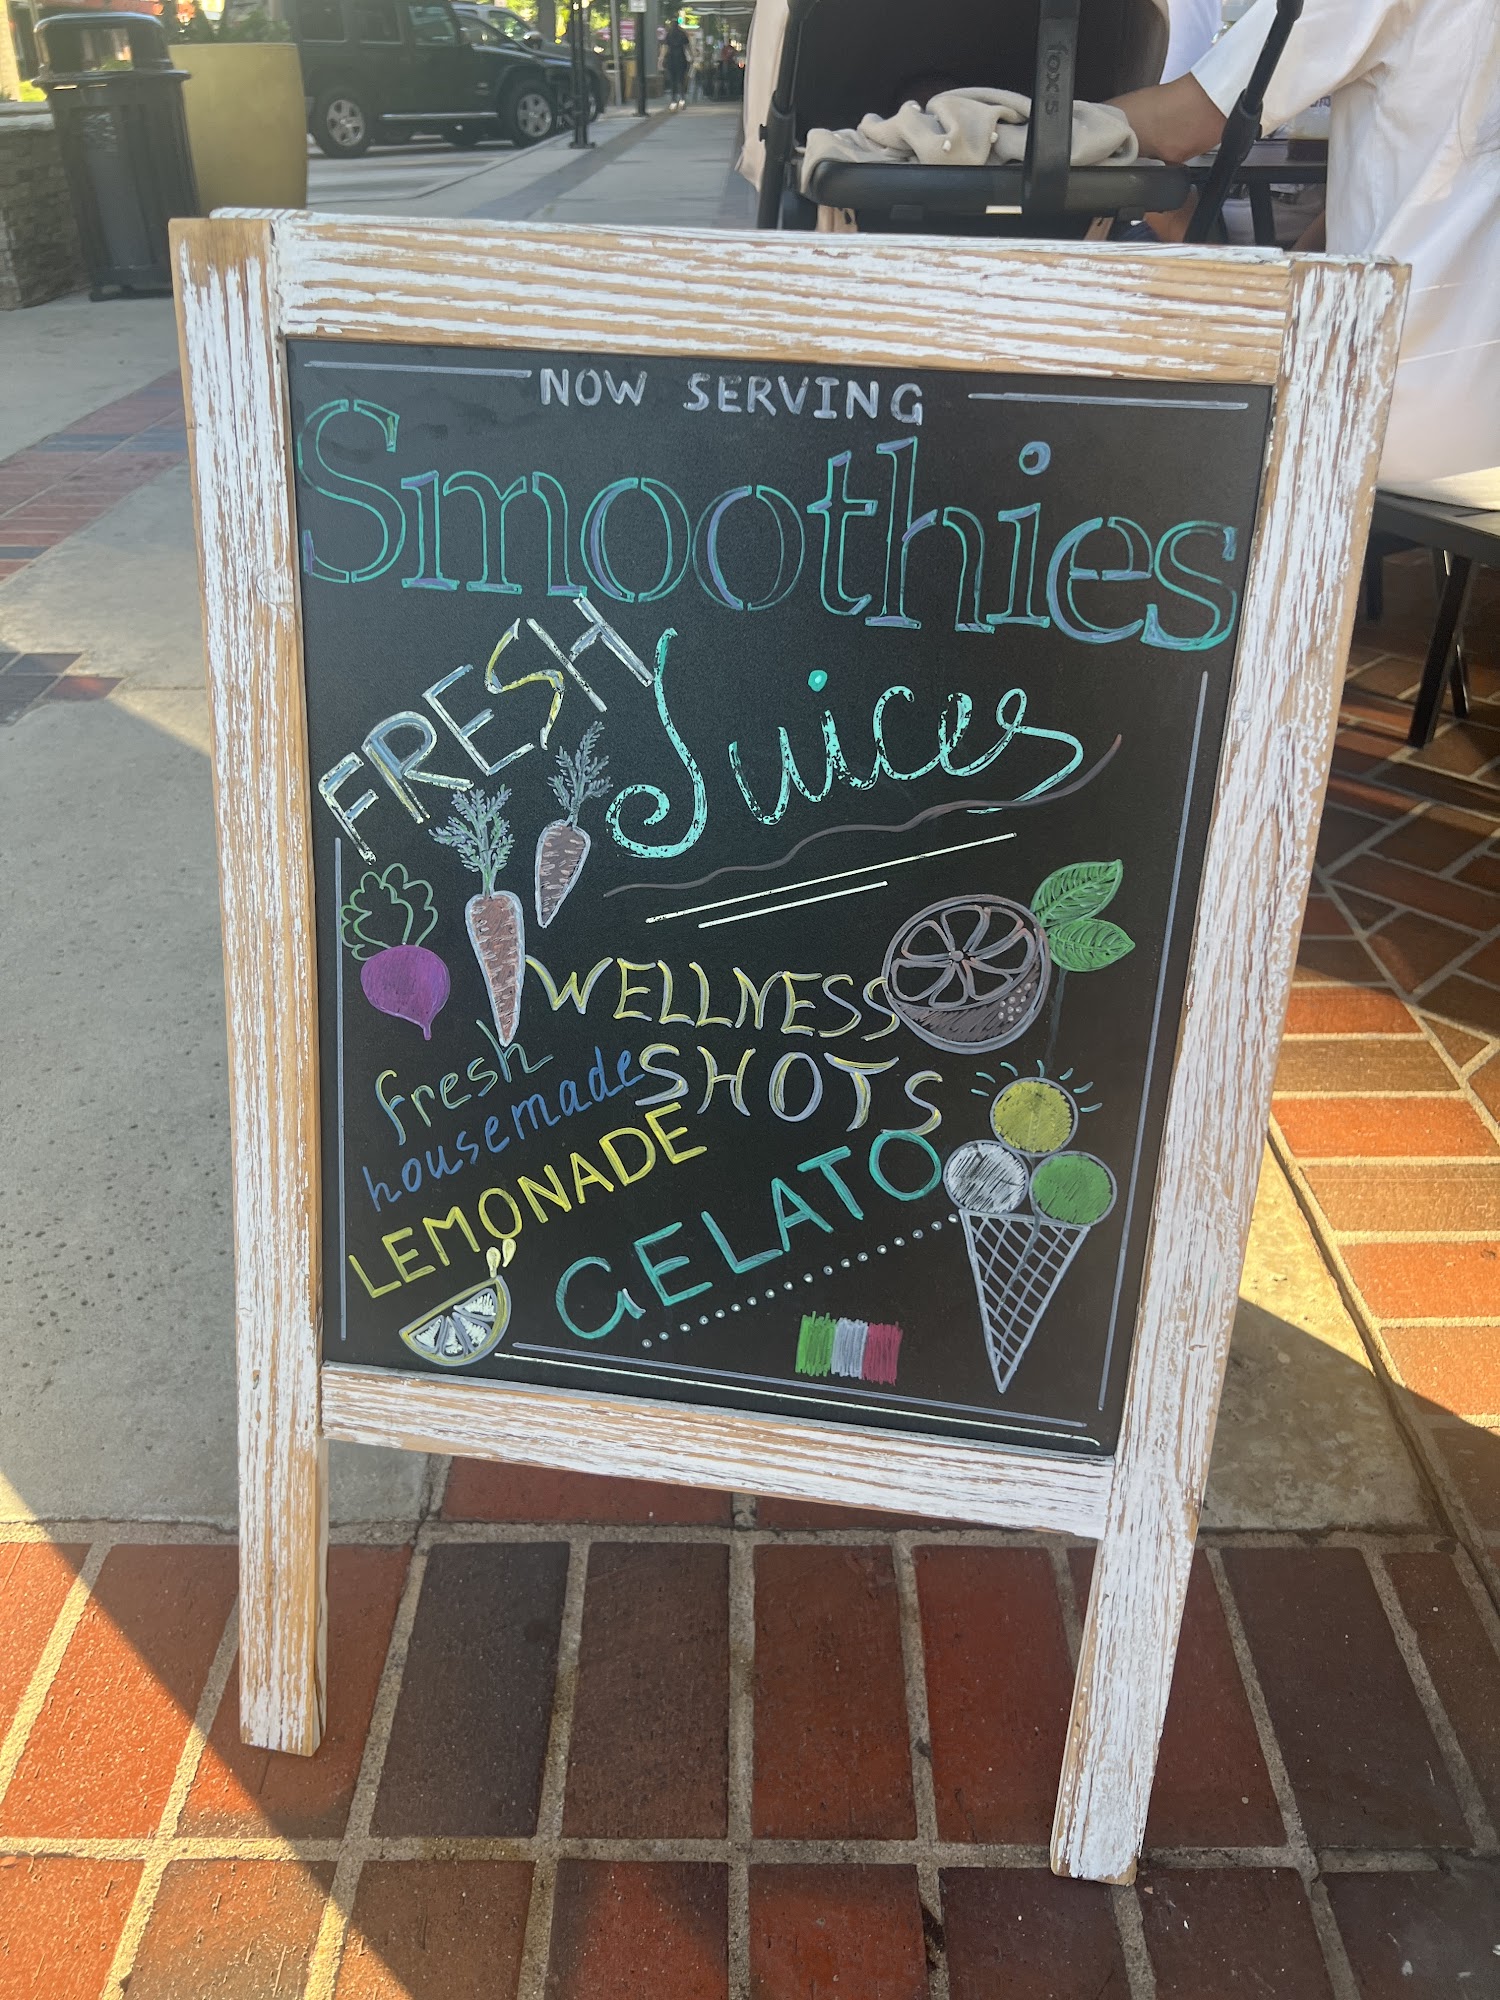 NOW SERVING
Smoothies
FRESH
Juices
WELLNESS
SHOTS
fresh
housemade
LEMONADE
GELATO